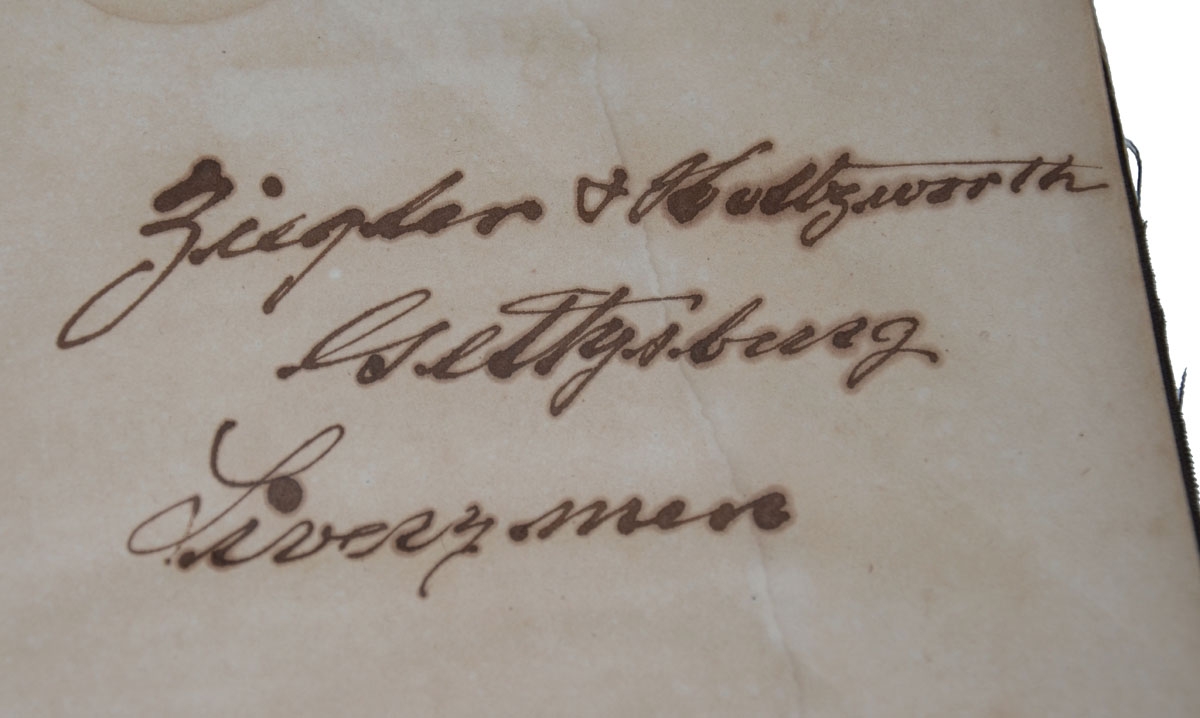 Ziegler & Holtzworth
Gettysburg
Liverymen